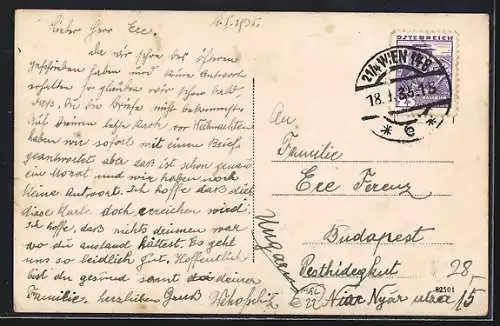 16.I.1935.
Lieber Herr Ecc.
Da wir schon des öfteren
geschrieben haben und keine Antwort
erhalten so glauben wir schon bald,
daß Du die Briefe nicht bekommst.
Auf Deinen letzte Karte vor Weihnachten
haben wir sofort mit einen Brief
geantwortet aber daß ist schon genau
ein Monat und wir haben noch
keine Antwort. Ich hoffe daß dich
diese Karte doch erreichen wird.
Ich hoffe, daß nichts
wo du anstand hättest. Es geht
uns so leidlich gut. Hoffentlich
bist du gesund samt deiner
Familie. Herzlichen Gruß
ÖSTERREICH
WIEN
18.I.35
* e *
An
Familie
Ecc Ferenz
Budapest
Pesthidegkut
Ungarn
Niar Nyár utca
28-/5
82501